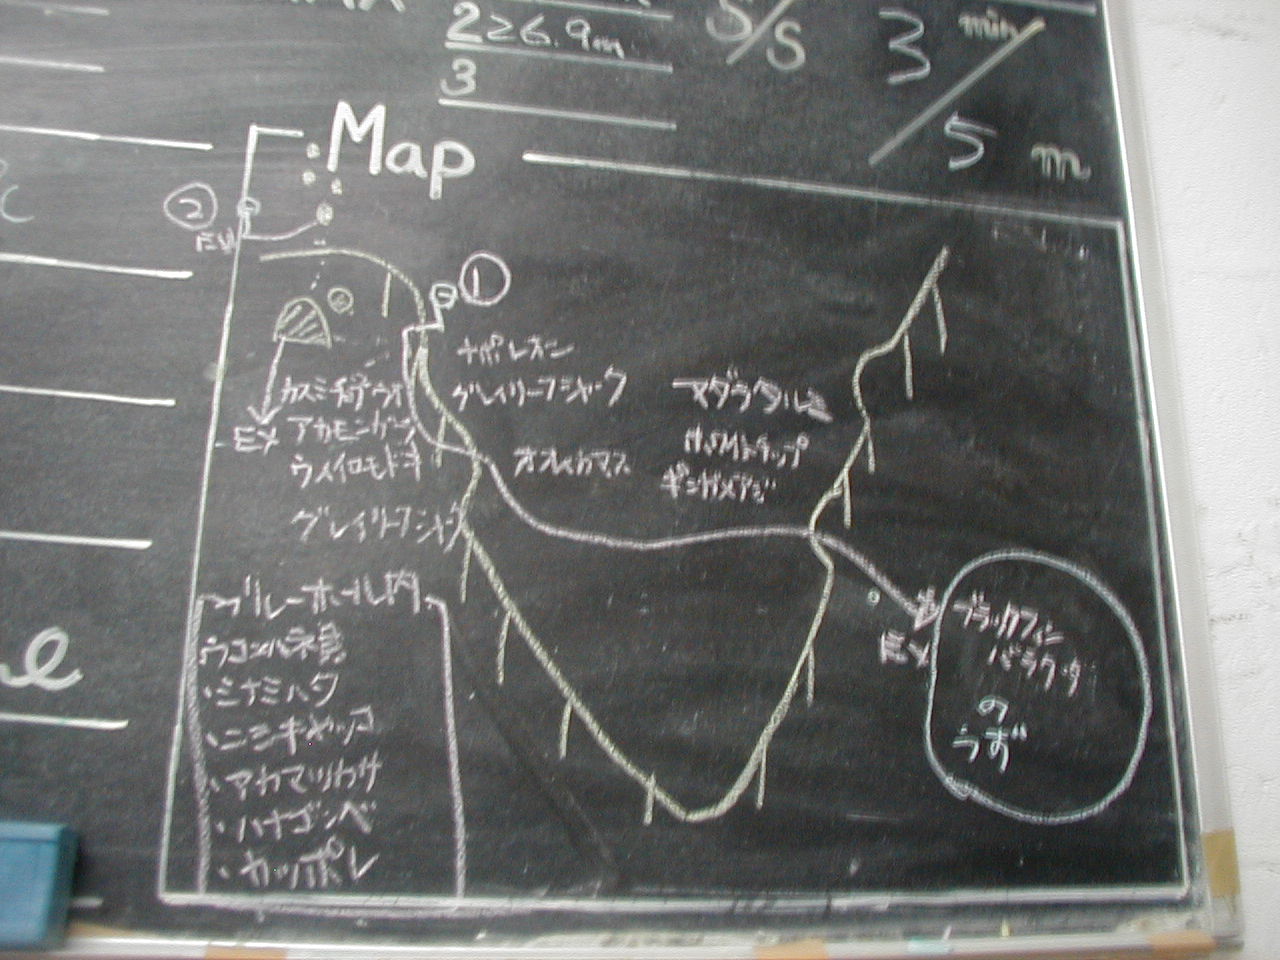 2 26.9m
3
S/S
3 min
5 m
Map
②
EN
①
ナポレオン
グレイリーフシャーク
マダラタルミ
カスミチョウチョウウオ
EX
アカモンガラ
ホワイトチップ
ウメイロモドキ
オオメカマス
ギンガメアジ
グレイリーフシャーク
ブルーホール内
ブラックフィン
バラクーダ
の
うず
EX
ウコンハネ貝
・ミナミハタ
・ニシキヤッコ
・アカマツカサ
・ハナゴンベ
・カッポレ